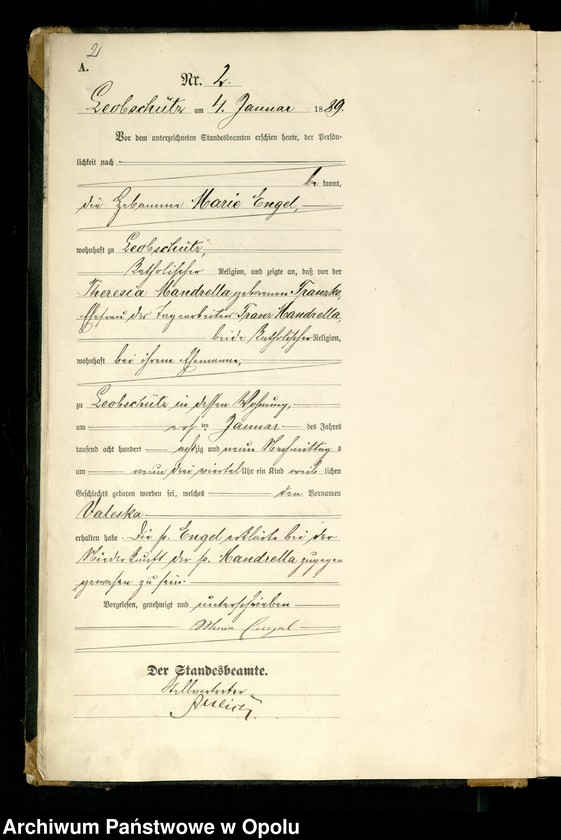 2
A.
Nr. 2.
Leobschütz am 4. Januar 1889.
Vor dem unterzeichneten Standesbeamten erschien heute, der Persön-
lichkeit nach
be kannt,
die Hebamme Marie Engel,
wohnhaft zu Leobschütz,
katholischer Religion, und zeigte an, daß von der
Theresia Mandrella geborenen
Ehefrau des Tagearbeiters Franz Mandrella,
beide katholischer Religion,
wohnhaft bei ihrem Ehemanne,
zu Leobschütz in dessen Wohnung,
am ersten Januar des Jahres
tausend acht hundert achtzig und neun Nachmittags
um neun drei viertel Uhr ein Kind weib lichen
Geschlechts geboren worden sei, welches den Vornamen
Valeska
erhalten habe. Die p. Engel erklärte bei der
Niederkunft der p. Mandrella zugegen
gewesen zu sein.
Vorgelesen, genehmigt und unterschrieben
Maria Engel
Der Standesbeamte.
Stellvertreter
Archiwum Państwowe w Opolu